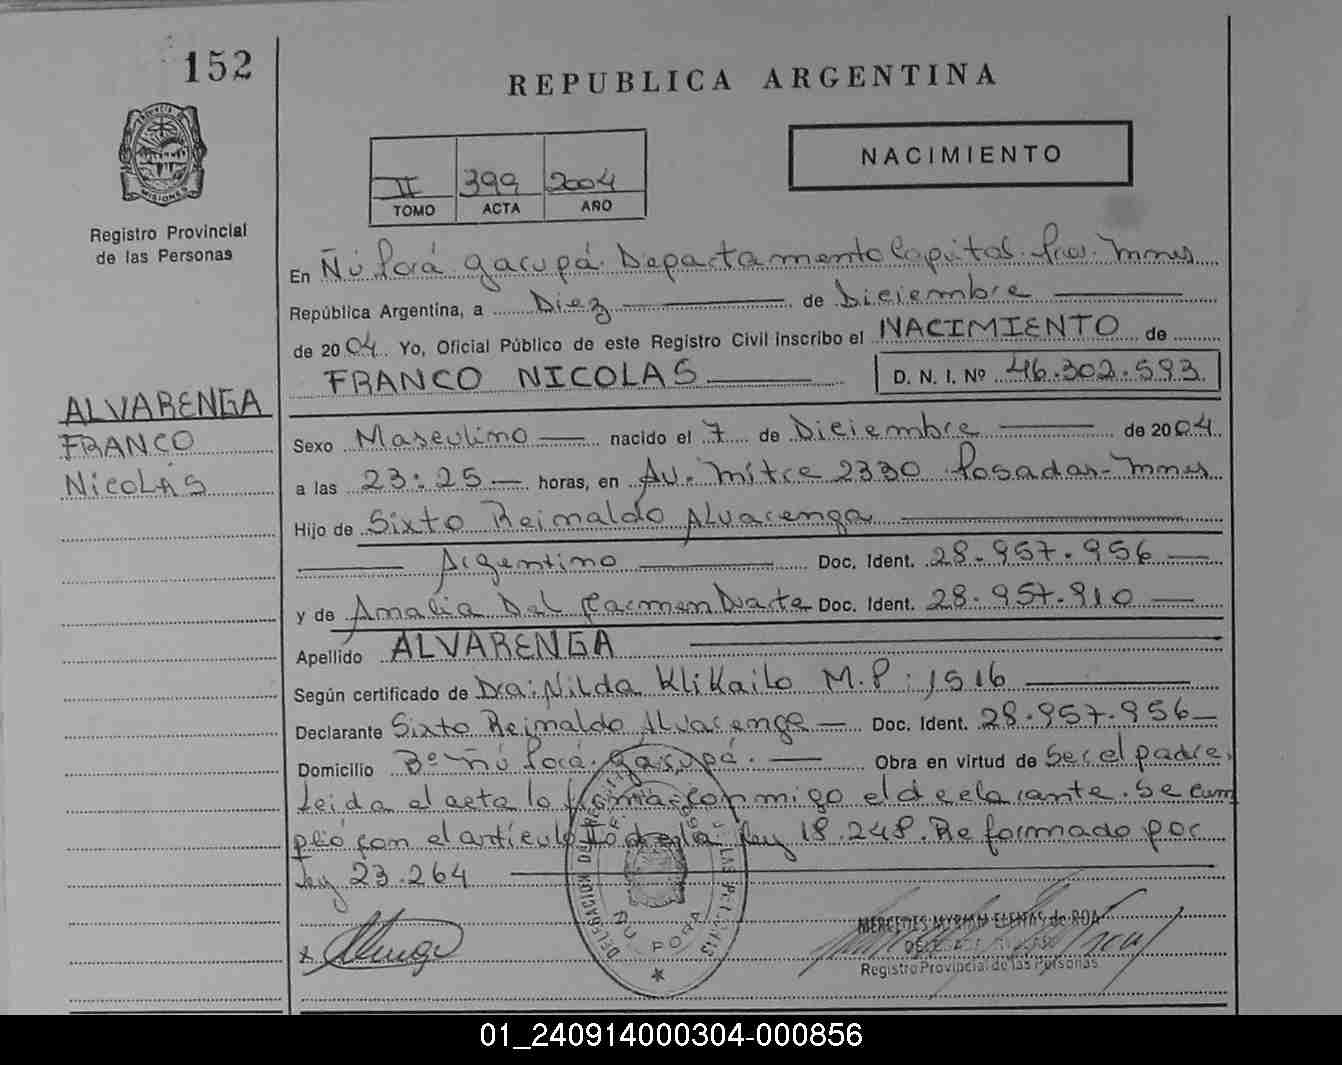 152
REPUBLICA ARGENTINA
NACIMIENTO
II 399 2004
TOMO ACTA AÑO
PROVINCIA DE
MISIONES
Registro Provincial
de las Personas
En Ñú Porá Garupá. Departamento Capital. Pcia. Mnes
República Argentina, a Diez de Diciembre
de 2004 Yo, Oficial Público de este Registro Civil inscribo el NACIMIENTO de
FRANCO NICOLAS D. N. I. Nº 46.302.593
ALVARENGA
FRANCO
NICOLÁS
Sexo Masculino nacido el 7 de Diciembre de 2004
a las 23:25 horas, en Av. Mitre 2330 Posadas-Mnes
Hijo de Sixto Reimaldo Alvarenga
Argentino Doc. Ident. 28.957.956
y de Amalia Del Carmen Duarte Doc. Ident. 28.957.910
Apellido ALVARENGA
Según certificado de Dra: Nilda Klikailo M.P: 1516
Declarante Sixto Reimaldo Alvarenga Doc. Ident. 28.957.956
Domicilio Bº Ñú Porá. Garupá. Obra en virtud de Ser el padre.
Leida el acta la firma conmigo el declarante. Se cum
plió con el artículo de la Ley 18.248. Reformado por
Ley 23.264
DELEGACION
ÑU PORA
MERCEDES MYRIAM de ROA
Registro Provincial de las Personas
01_240914000304-000856